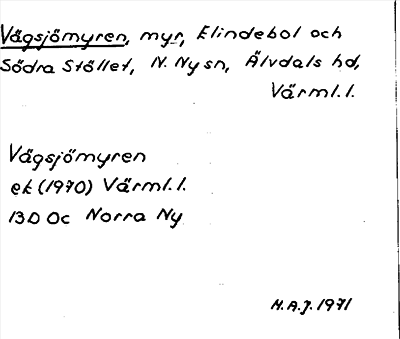 Vågsjömyren, myr, Elindebol och
Södra Stöllet, N. Ny sn, Älvdals hd,
Värml. l.
Vågsjömyren
ek (1970) Värml. l.
13D 0c Norra Ny
H.A.J. 1971